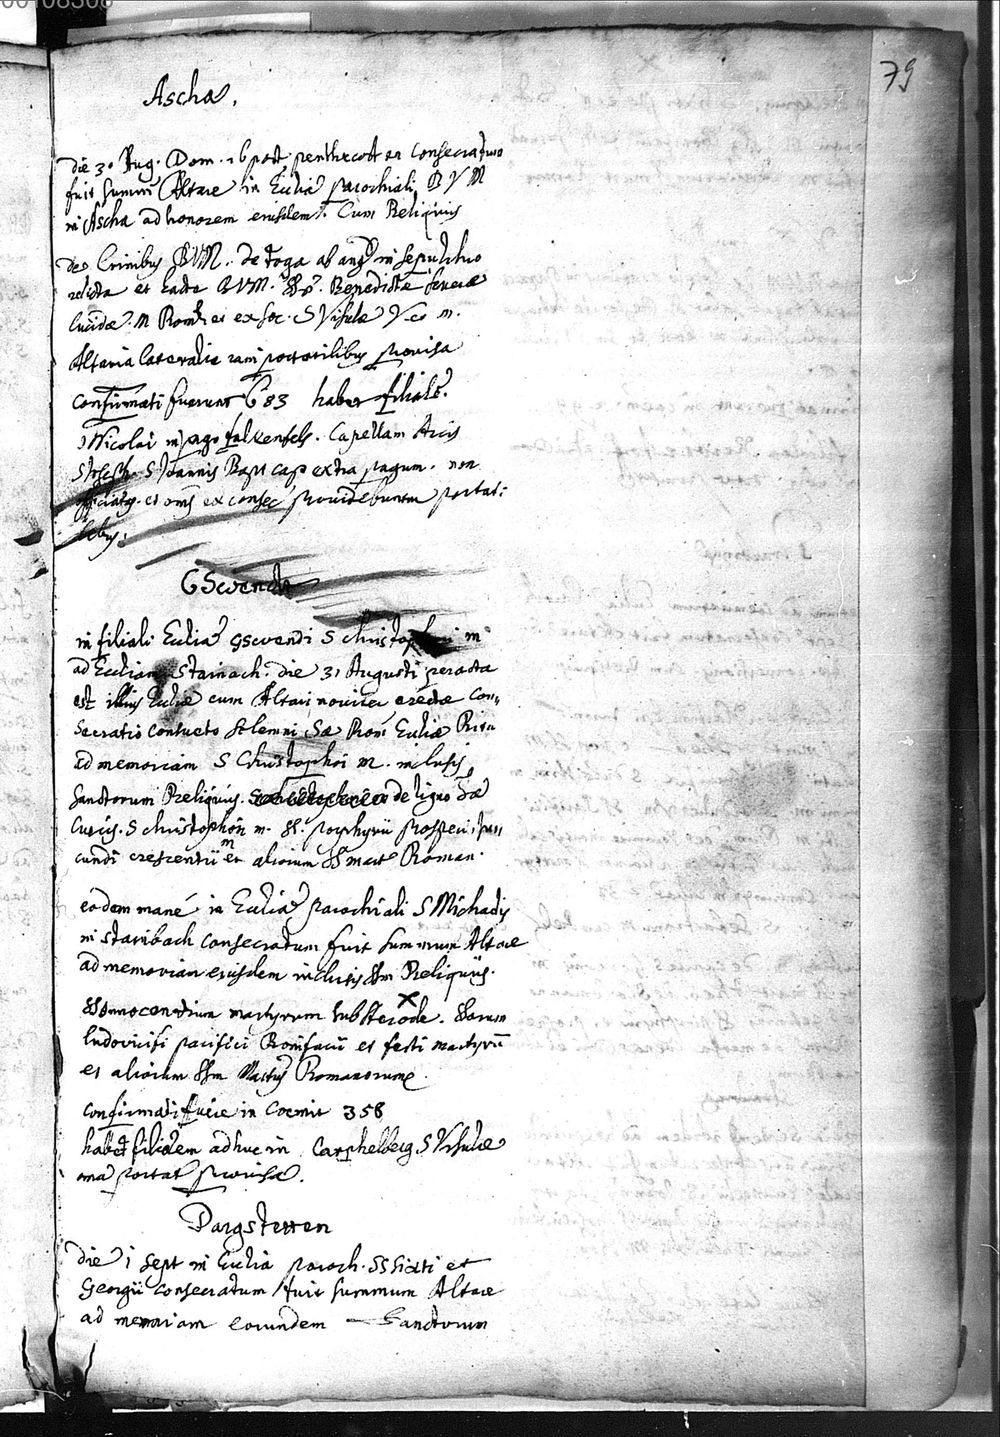 79
Ascha.
die 30 Aug. Dom. 16 post penthecosten consecratum
fuit summum Altare in Ecclia parochiali B V M
in Ascha ad honorem eiusdem. Cum Reliquiis
de Crinibus BVM. de toga ab in sepulchro
relicta et BVM. SS. Benedictae severae
lucidae. M Rom et ex soc. S Ursulae V et m.
Altaria lateralia portatilibus provisa
confirmati fuerunt 683 habet filiale.
S Nicolai in pago falkenfels. Capellam Arcis
S Joseph S Joannis Bapt cap extra pagum. non
et ex consec providebuntur portati:
libus.
GSwendt
in filiali Ecclia gswendi S christophori m
ad Eccliam Stainach. die 31 Augusti peracta
est illius Eccliae cum Altari noviter erectae Con,,
secratio consueto solemni Sae Rom Eccliae Ritu
ad memoriam S Christophori m. inclusis
sanctorum Reliquiis. de ligno Sae
Crucis. S christophori m. SS. porphyrii prosperi, fa,,
cundi crescentii m et aliorum SS mart Roman.
eodem mané in Ecclia parochiali S Michaelis
in stainbach consecratum fuit summum Altare
ad memoriam eiusdem inclusis SSm Reliquiis.
SS Innocentium martyrum sub Herode. SSorum
ludovici pacifici Bonifacii et festi martyrum
et aliorum SSm Martyrum Romanorum
confirmati fuere in Coemit 358
habet filialem adhuc in Carphelberg S Ursulae
una portat provisa.
Dargstetten
die 1 sept in Ecclia paroch. SS Sixti et
Georgii consecratum fuit summum Altare
ad memoriam eorundem Sanctorum